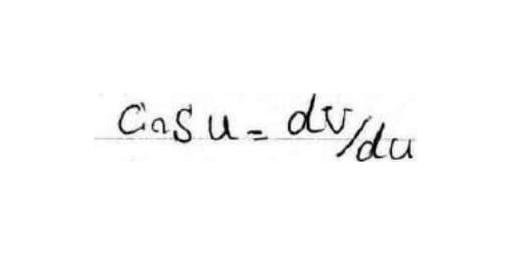 cos u = dv/du